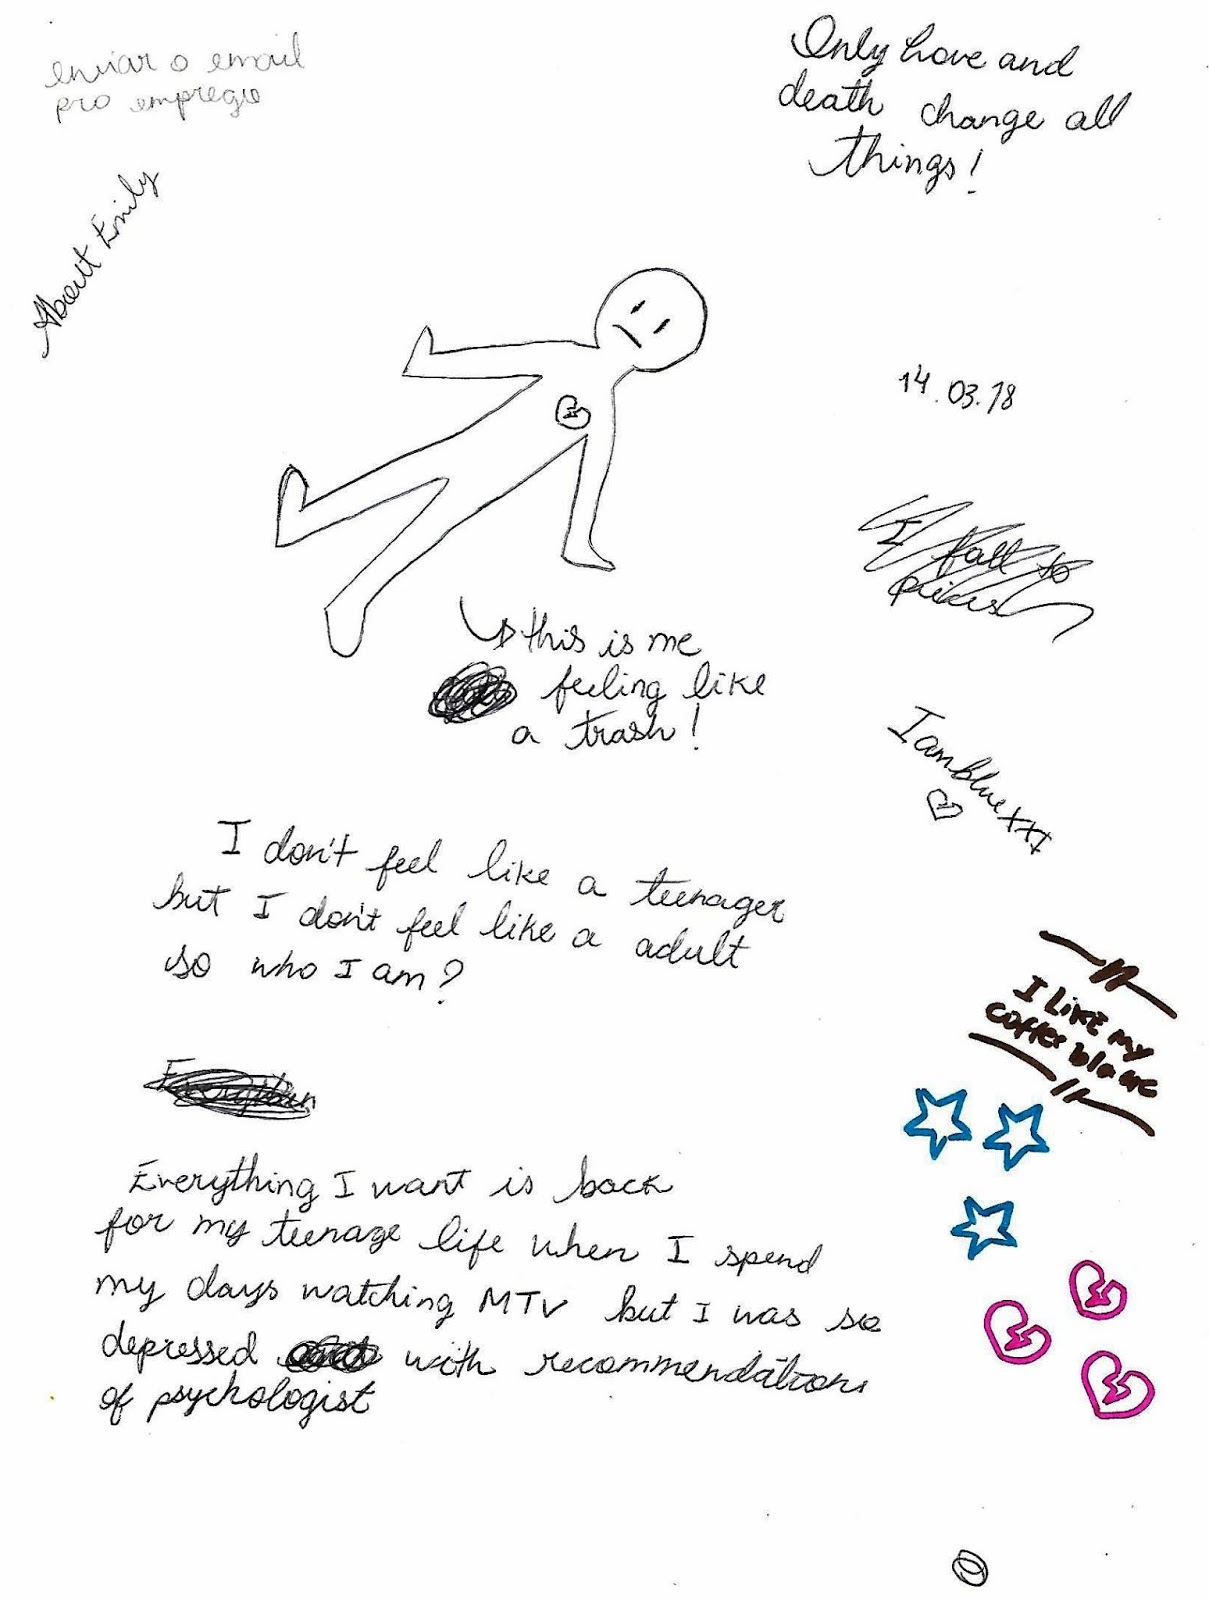 enviar o email
pro emprego
Only Love and
death change all
things!
About Emily
14.03.18
I fall to
pieces
this is me
feeling like
a trash!
IambluexxI
I don't feel like a teenager
but I don't feel like a adult
so who I am?
I LiKE my
coffee black
Everything I want is back
for my teenage life when I spend
my days watching MTV but I was so
depressed with recommendations
of psychologist